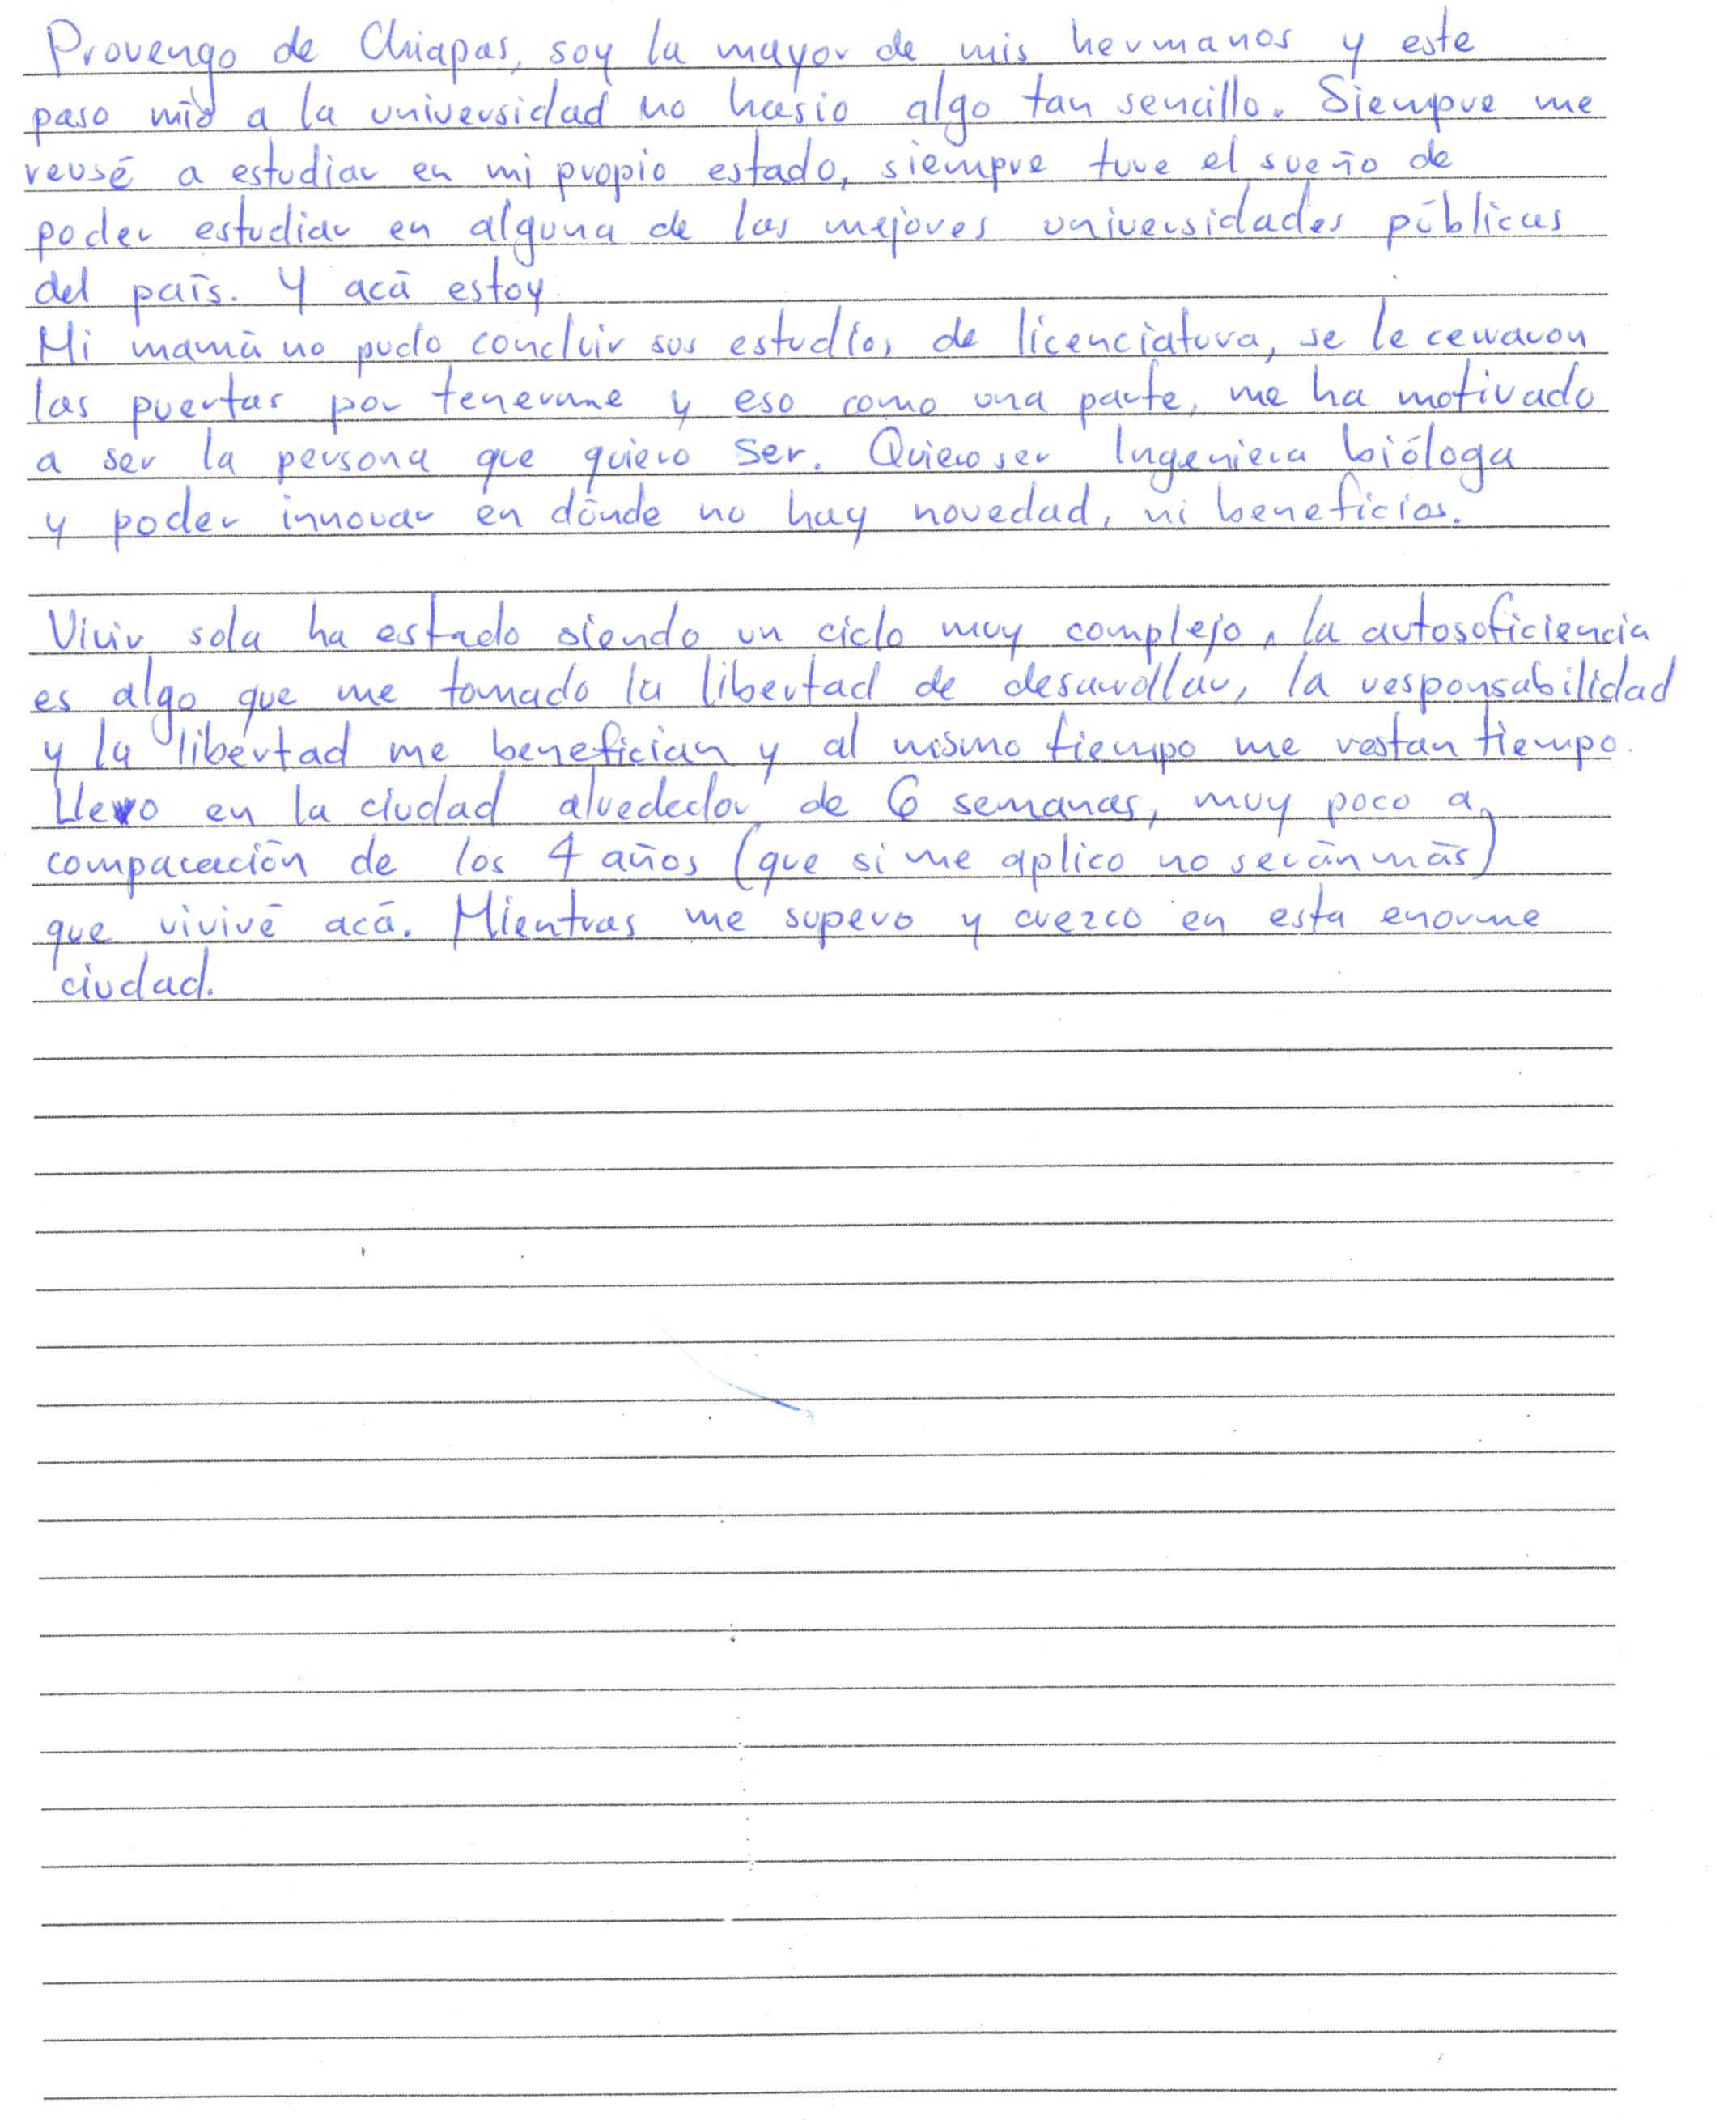 Provengo de Chiapas, soy la mayor de mis hermanos y este
paso mío a la universidad no hasio algo tan sencillo. Siempre me
reusé a estudiar en mi propio estado, siempre tuve el sueño de
poder estudiar en alguna de las mejores universidades públicas
del país. Y acá estoy
Mi mamá no pudo concluir sus estudios de licenciatura, se le cerraron
las puertas por tenerme y eso como una parte, me ha motivado
a ser la persona que quiero ser. Quiero ser Ingeniera bióloga
y poder innovar en dónde no hay novedad, ni beneficios.
Vivir sola ha estado siendo un ciclo muy complejo, la autosoficiencia
es algo que me tomado la libertad de desarrollar, la responsabilidad
y la libertad me benefician y al mismo tiempo me restan tiempo.
Llevo en la ciudad alrededor de 6 semanas, muy poco a
comparación de los 4 años (que si me aplico no serán más)
que viviré acá. Mientras me supero y crezco en esta enorme
ciudad.